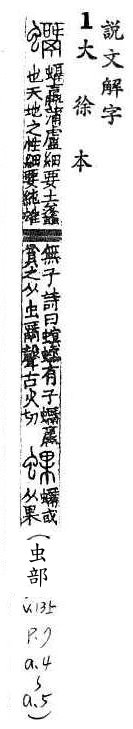 說文解字
1 大徐本
蠃蒲盧細要土蠭
也天地之性細要純雄
無子詩曰螟蠕有子蠃
負之从虫聲古火切
蜾
或
从果
(虫部 v.135 p.9 a.4 ~ a.5)